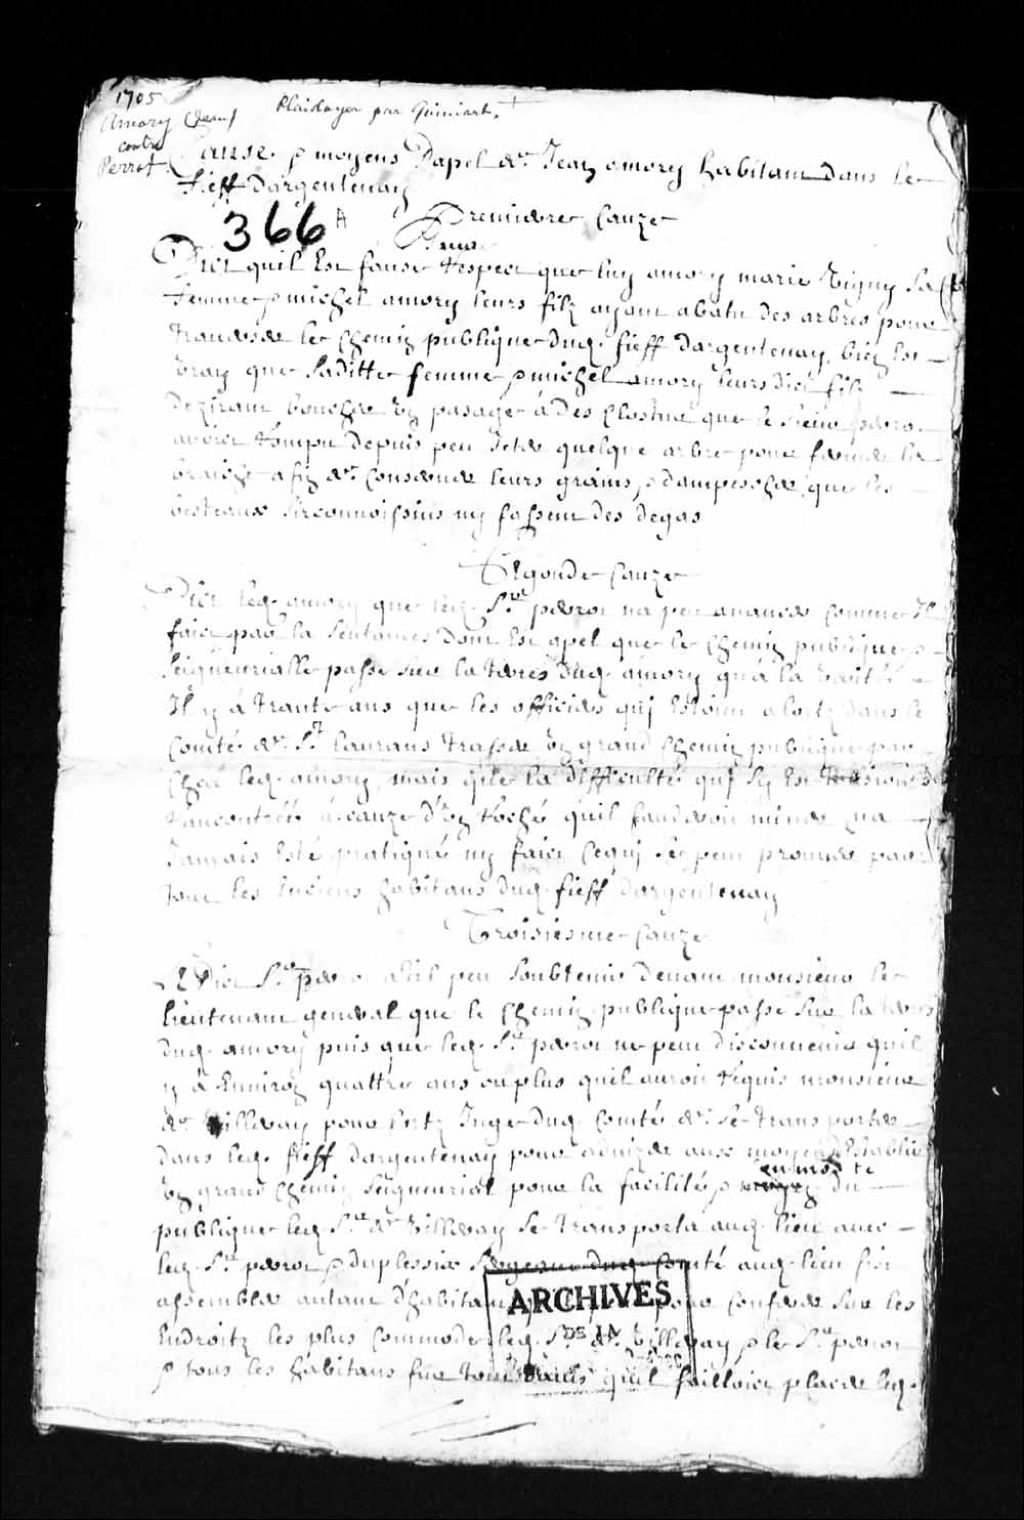 1705
Plaidoyer par Guimart
Amory (Jean)
contre
Perrot.
Cause & moyens Dapel de Jean amory habitant dans le
fieff Dargentenay
366 A
Premiere Cauze
Dict quil Est faux respect que luy amory marie vigny sa
femme & michel amory leurs filz ayent abatu des arbres pour
traverser le chemin publique dud. fieff dargentenay, bien Est
vray que saditte femme & michel amory leurs dict filz
dezirant boucher un pasage à des closture que le sieur perot
avoict rompu depuis peu Jeter quelque arbre pour fermer la
braiche afin de conserver leurs grains, & dampescher que les
bestiaux circonnoissins ny fassent des degas
Segonde Cauze
Dict led. amory que led. Sr. perrot na peu avancer comme Il
faict par la sentences dont Est apel que le chemin publique &
seigneurialle passe sur la terres dud. amory qua la verité
Il y à trante ans que les officiers quj Estoint alortz dans le
Comté de St. laurans trasser un grand chemin publique par
chez led. amory mais que la difficulté quj sy Est
rancontréé à cauze d'un roché quil faudroit miner na
Jamais Esté pratiqué ny faict cequj se peut prouver par
tout les Enciens habitans dud. fieff dargentenay
Troisiesme Cauze
Dict Sr. perot a til peu soubtenir devant monsieur le
lieutenant general que le chemin publique passe sur la terres
dud. amory puis que led. Sr. perrot ne peut disconvenir quil
y à Environ quattre ans ou plus quil auroit requis monsieur
de villeray pour lortz Juge dud. Comté de se transporter
dans led. fieff dargentenay pour advizer aux moyens d'Establir
un grand chemin seigneurial pour la facilité & commodité du
publique led. Sr. de villeray se transporta aud. lieu avec
led. Sr. perrot & duplessis sergent dud. comté aud. lieu fict
assembler autant d'habitans pour conferer sur les
Endroitz les plus commode led. Sr. de villeray & le Sr. perrot
& tous les habitans fure tous d'avis quil failloict placer led.
ARCHIVES
DE LA